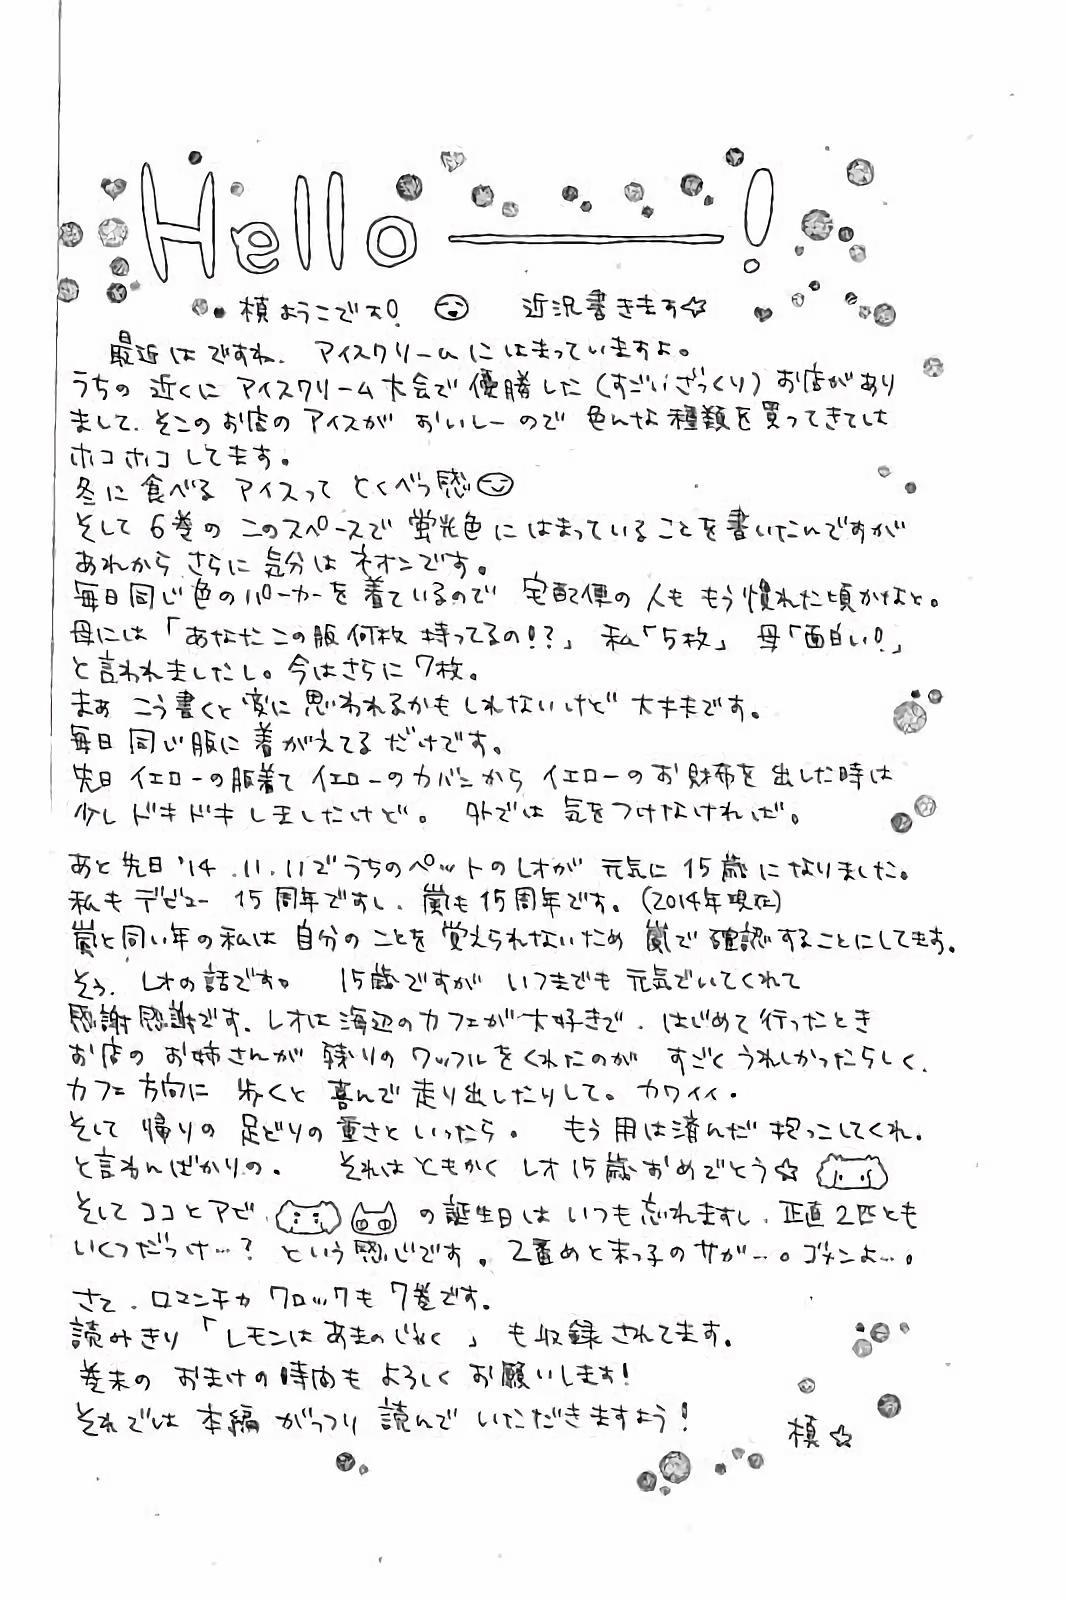 Hello ―――!
槙ようこです! 近況書きます☆
最近はですね、アイスクリームにはまっていますよ。
うちの近くにアイスクリーム大会で優勝した(すごいざっくり)お店があり
まして、そこのお店のアイスがおいしーので色んな種類を買ってきてし
ホコホコしてます。
冬に食べるアイスってとくべつ感
そして6巻のこのスペースで蛍光色にはまっていることを書いたんですが
あれからさらに気分はネオンです。
毎日同じ色のパーカーを着ているので宅配便の人ももう慣れた頃かなと。
母には「あなたこの服何枚持ってるの!?」私「5枚」母「面白い!」
と言われましたし。今はさらに7枚。
まあこう書くと変に思われるかもしれないけど大丈夫です。
毎日同じ服に着がえてるだけです。
先日イエローの服着てイエローのカバンからイエローのお財布を出した時は
少しドキドキしましたけど。外では気をつけなければ。
あと先日'14.11.11でうちのペットのレオが元気に15歳になりました。
私もデビュー15周年ですし、嵐も15周年です。(2014年現在)
嵐と同い年の私は自分のことを覚えられないため嵐で確認することにしてます。
そう、レオの話です。15歳ですがいつまでも元気でいてくれて
感謝感謝です。レオは海辺のカフェが大好きで、はじめて行ったとき
お店のお姉さんが残りのワッフルをくれたのがすごくうれしかったらしく、
カフェ方向に歩くと喜んで走り出したりして。カワイイ。
そして帰りの足どりの重さといったら。もう用は済んだ抱っこしてくれ。
と言わんばかりの。それはともかくレオ15歳おめでとう☆
そしてココとアビ、の誕生日はいつも忘れますし、正直2匹とも
いくつだっけ…?という感じです。2番めと末っ子のサガ…。ゴメンよ…。
さて、ロマンチカクロックも7巻です。
読みきり「レモンはあまのじゃく」も収録されてます。
巻末のおまけの時間もよろしくお願いします!
それでは本編がっつり読んでいただきますよう!
槙☆